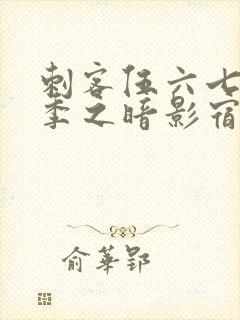 刺客伍六七
季之暗影宿
俞華郢